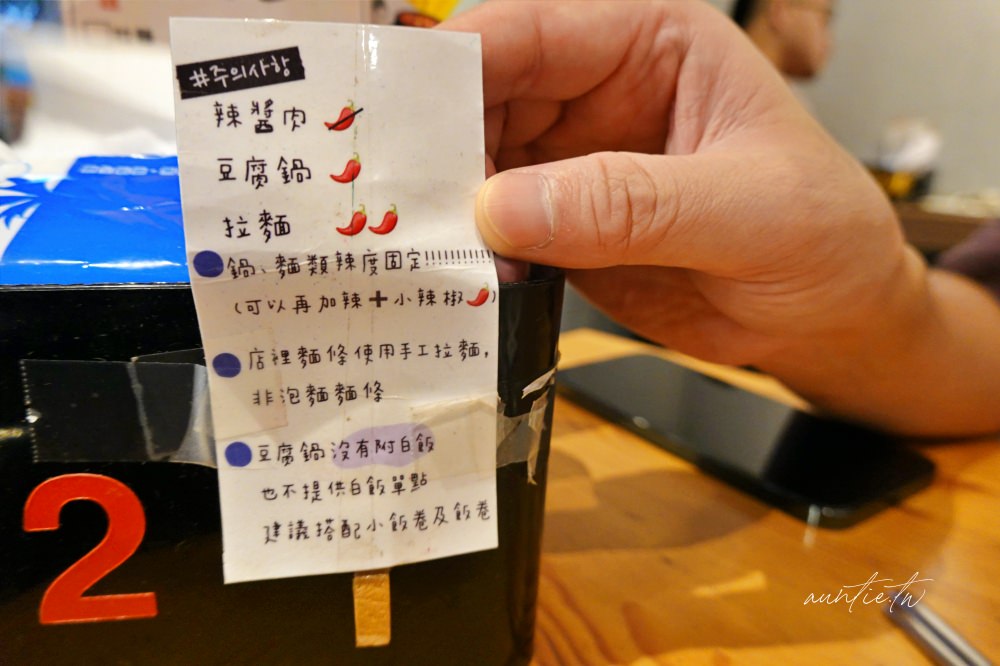 #주의사항
辣醬肉
豆腐鍋
拉麵
鍋、麵類辣度固定!!!!!!!!!!!
(可以再加辣+小辣椒)
店裡麵條使用手工拉麵,
非泡麵麵條
豆腐鍋沒有附白飯
也不提供白飯單點
建議搭配小飯卷及飯卷
2
auntie.tw